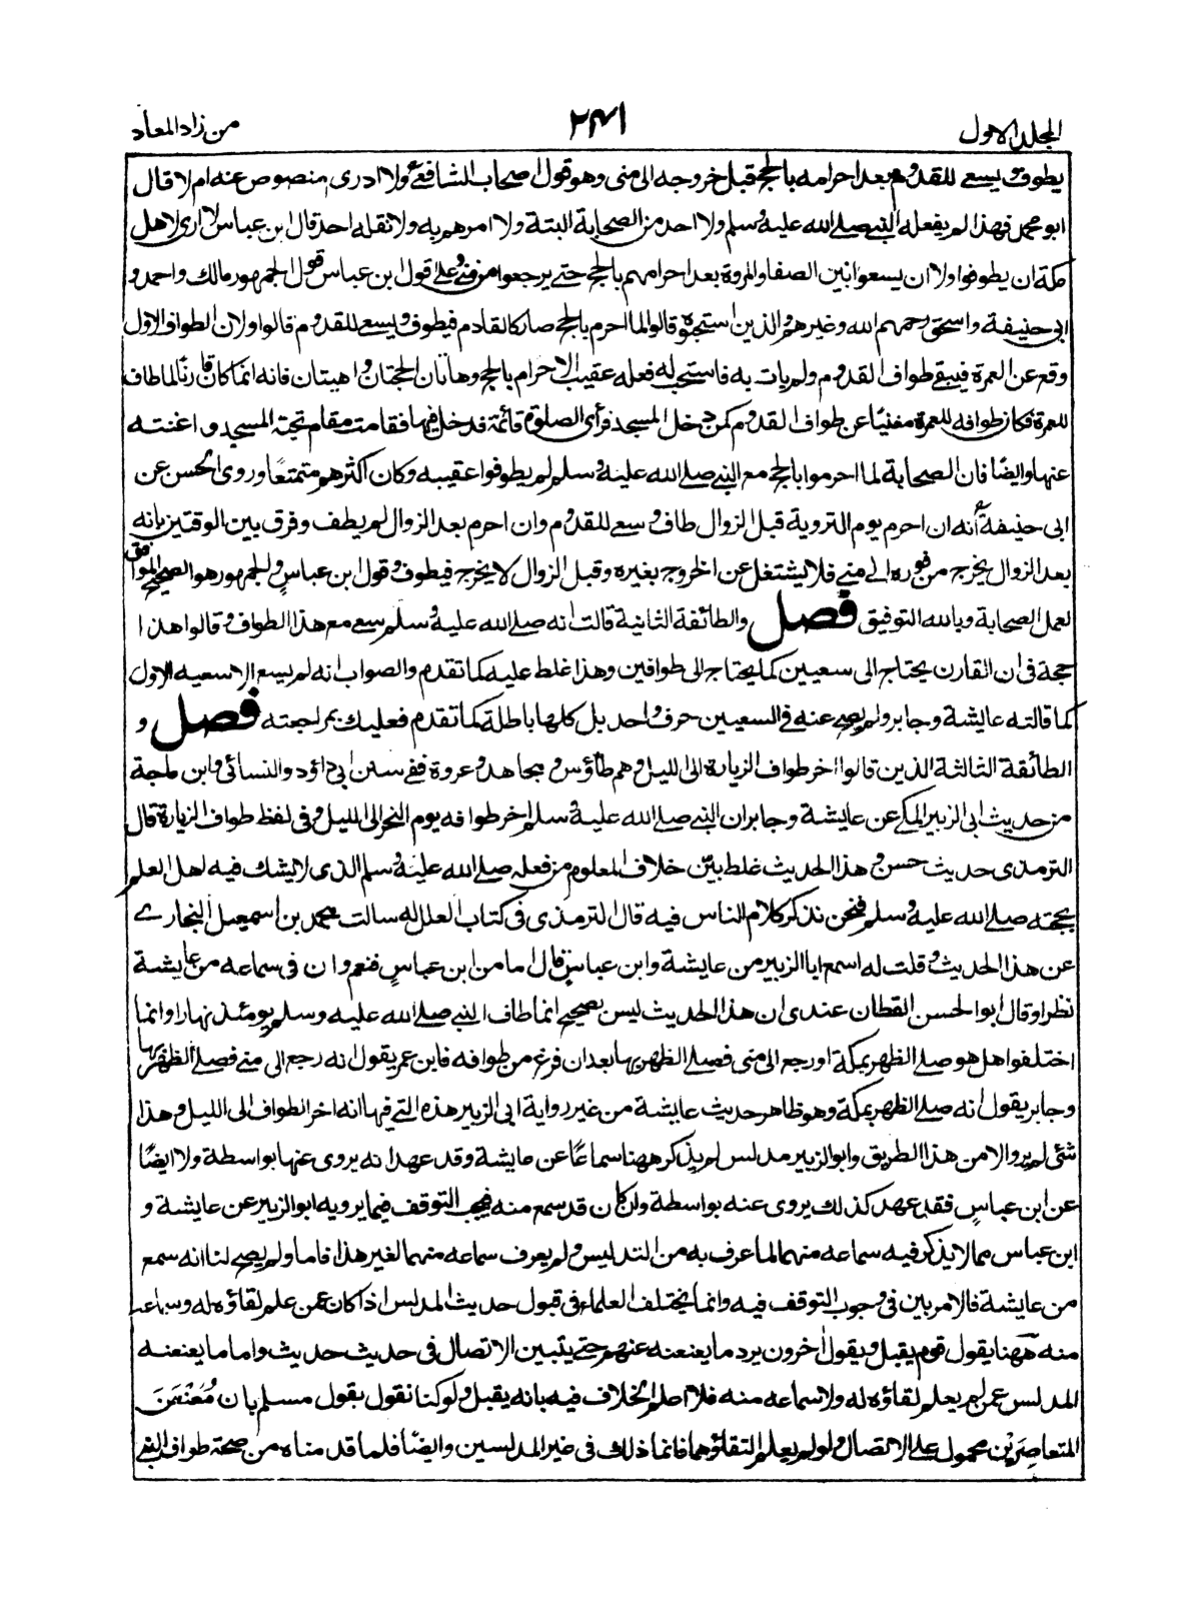 المجلد الاول
٢٤١
من زاد المعاد
يطوف ويسعى للقدوم بعد احرامه بالحج قبل خروجه الى منى وهو قول اصحاب الشافعي ولا ادرى منصوص عنه ام لا قال
ابو محمد فهذا لم يفعله النبي صلى الله عليه وسلم ولا احد من الصحابة البتة ولا امرهم به ولا نقله احد قال ابن عباس لا ارى لاهل
مكة ان يطوفوا ولا ان يسعوا بين الصفا والمروة بعد احرامهم بالحج حتى يرجعوا من منى وعلى قول ابن عباس قول الجمهور مالك واحمد و
ابى حنيفة واسحق رحمهم الله وغيرهم والذين استحبوه قالوا لما احرم بالحج صار كالقادم فيطوف ويسعى للقدوم قالوا ولان الطواف الاول
وقع عن العمرة فيبقى طواف القدوم ولم يات به فاستحب له فعله عقيب الاحرام بالحج وهاتان الحجتان واهيتان فانه انما كان قارنا لما طاف
للعمرة فكان طوافه للعمرة مغنيًا عن طواف القدوم كمن دخل المسجد فرأى الصلوة قائمة فدخل فيها فقامت مقام تحية المسجد واغنته
عنها وايضًا فان الصحابة لما احرموا بالحج مع النبي صلى الله عليه وسلم لم يطوفوا عقيبه وكان اكثرهم متمتعًا وروى الحسن عن
ابى حنيفة أنه ان احرم يوم التروية قبل الزوال طاف وسعى للقدوم وان احرم بعد الزوال لم يطف وفرق بين الوقتين بانه
بعد الزوال يخرج من فوره الى منى فلا يشتغل عن الخروج بغيره وقبل الزوال لا يخرج فيطوف وقول ابن عباس والجمهور هو الصحيح الموافق
لعمل الصحابة وبالله التوفيق فصل والطائفة الثانية قالت انه صلى الله عليه وسلم سعى مع هذا الطواف وقالوا هذا
حجة فى ان القارن يحتاج الى سعيين كما يحتاج الى طوافين وهذا غلط عليه كما تقدم والصواب انه لم يسع الا سعيه الاول
كما قالته عايشة وجابر ولم يصح عنه فى السعيين حرف واحد بل كلها باطلة كما تقدم فعليك بمراجعته فصل و
الطائفة الثالثة الذين قالوا اخر طواف الزيارة الى الليل وهم طاؤس ومجاهد وعروة ففى سنن ابى داؤد والنسائى وابن ماجة
من حديث ابى الزبير المكى عن عايشة وجابر ان النبي صلى الله عليه وسلم اخر طوافه يوم النحر الى الليل وفى لفظ طواف الزيارة قال
الترمذى حديث حسن وهذا الحديث غلط بيّن خلاف المعلوم من فعله صلى الله عليه وسلم الذى لا يشك فيه اهل العلم
بحجته صلى الله عليه وسلم فنحن نذكر كلام الناس فيه قال الترمذى فى كتاب العلل له سالت محمد بن اسمعيل البخارى
عن هذا الحديث وقلت له اسمع ابا الزبير من عايشة وابن عباس قال اما من ابن عباس فنعم وان فى سماعه من عايشة
نظرا وقال ابو الحسن القطان عندى ان هذا الحديث ليس بصحيح انما طاف النبي صلى الله عليه وسلم يومئذ نهارا وانما
اختلفوا هل هو صلى الظهر بمكة او رجع الى منى فصلى الظهر بها بعد ان فرغ من طوافه فابن عمر يقول انه رجع الى منى فصلى الظهر بها
وجابر يقول انه صلى الظهر بمكة وهو ظاهر حديث عايشة من غير رواية ابى الزبير هذه التى فيها انه اخر الطواف الى الليل وهذا
شئى لم يرو الا من هذا الطريق وابو الزبير مدلس لم يذكر ههنا سماعًا عن عايشة وقد عهد انه يروى عنها بواسطة ولا ايضًا
عن ابن عباس فقد عهد كذلك يروى عنه بواسطة وان كان قد سمع منه فيجب التوقف فيما يرويه ابو الزبير عن عايشة و
ابن عباس مما لا يذكر فيه سماعه منهما لما عرف به من التدليس ولم يعرف سماعه منهما لغير هذا فاما ولم يصح لنا انه سمع
من عايشة فالامر بين فى وجوب التوقف فيه وانما يختلف العلماء فى قبول حديث المدلس اذا كان عمن علم لقاؤه له وسماعه
منه ههنا يقول قوم يقبل ويقول اخرون يرد ما يعنعنه عنهم حتى يتبين الاتصال فى حديث حديث واما ما يعنعنه
المدلس عمن لم يعلم لقاؤه له ولا سماعه منه فلا اعلم الخلاف فيه بانه يقبل ولو كنا نقول بقول مسلم بان مُعَنْعَنَ
المتعاصِرَيْن محمول على الاتصال ولو لم يعلم التقاؤهما فانما ذلك فى غير المدلسين وايضًا فلما قدمناه من صحة طواف النبى